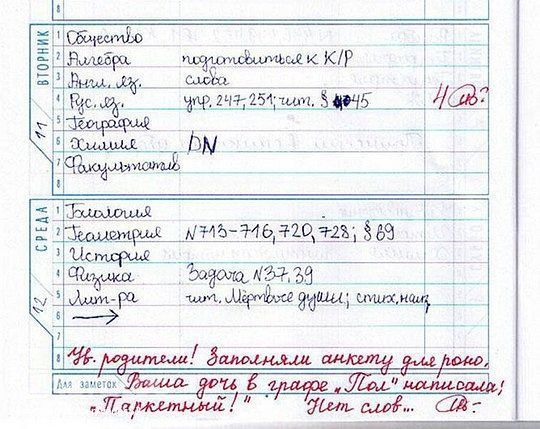 8
ВТОРНИК
11
1 Общество
2 Алгебра подготовиться к К/Р
3 Англ. яз. слова
4 Рус. яз. упр. 247, 251; чит. § 45 4
5 География
6 Химия
7 Факультатив
8
СРЕДА
12
1 Биология
2 Геометрия N713-716, 720, 728; § 69
3 История
4 Физика Задача N37,39
5 Лит-ра чит. Мёртвые души; стих. наиз.
6 →
7
8 Ув. родители! Заполняли анкету для роно.
Для заметок Ваша дочь в графе „Пол" написала;
„Паркетный!" Нет слов...